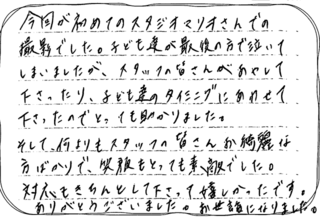 今回が初めてのスタジオマリオさんでの
撮影でした。子ども達が最後の方で泣いて
しまいましたが、スタッフの皆さんがあやして
下さったり、子ども達のタイミングにあわせて
下さったのでとっても助かりました。
そして、何よりもスタッフの皆さんが綺麗な
方ばかりで、笑顔もとっても素敵でした。
対応もきちんとして下さって嬉しかったです。
ありがとうございました。お世話になりました。